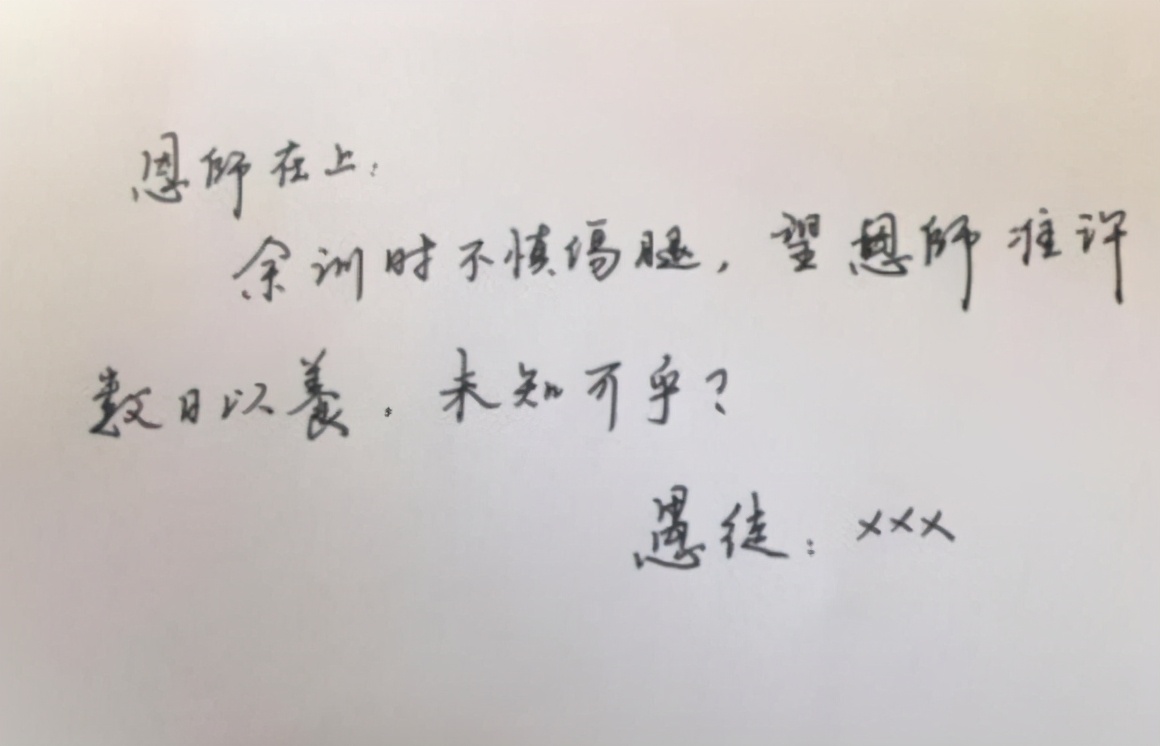 恩师在上:
余训时不慎伤腿,望恩师准许
数日以养.未知可乎?
愚徒:×××